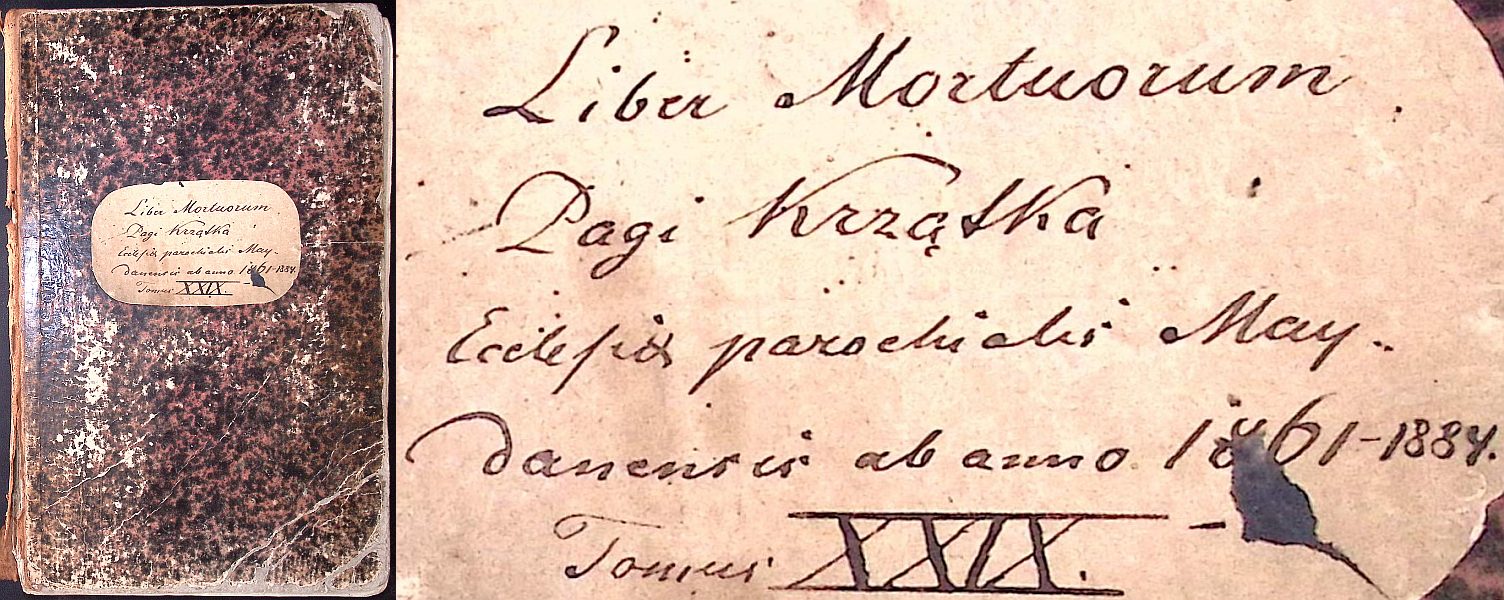 Liber Mortuorum
Pagi Krzątka
Eccleſiæ parochialis May-
danensis ab anno 1861-1884.
Tomus XXIX.
Liber Mortuorum
Pagi Krzątka
Eccleſiæ parochialis May-
danensis ab anno 1861-1884.
Tomus XXIX.